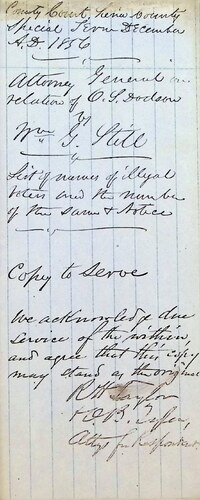 County Court, Sierra County
Special Term December
A.D. 1856
Attorney General on
relation of O. S. Dodson
vs
Wm G. Still
List of names of illegal
voters and the number
of the same & Notice
Copy to Serve
We acknowledge due
service of the within,
and agree that this copy
may stand as the original
R H Taylor
Attys for Respondent